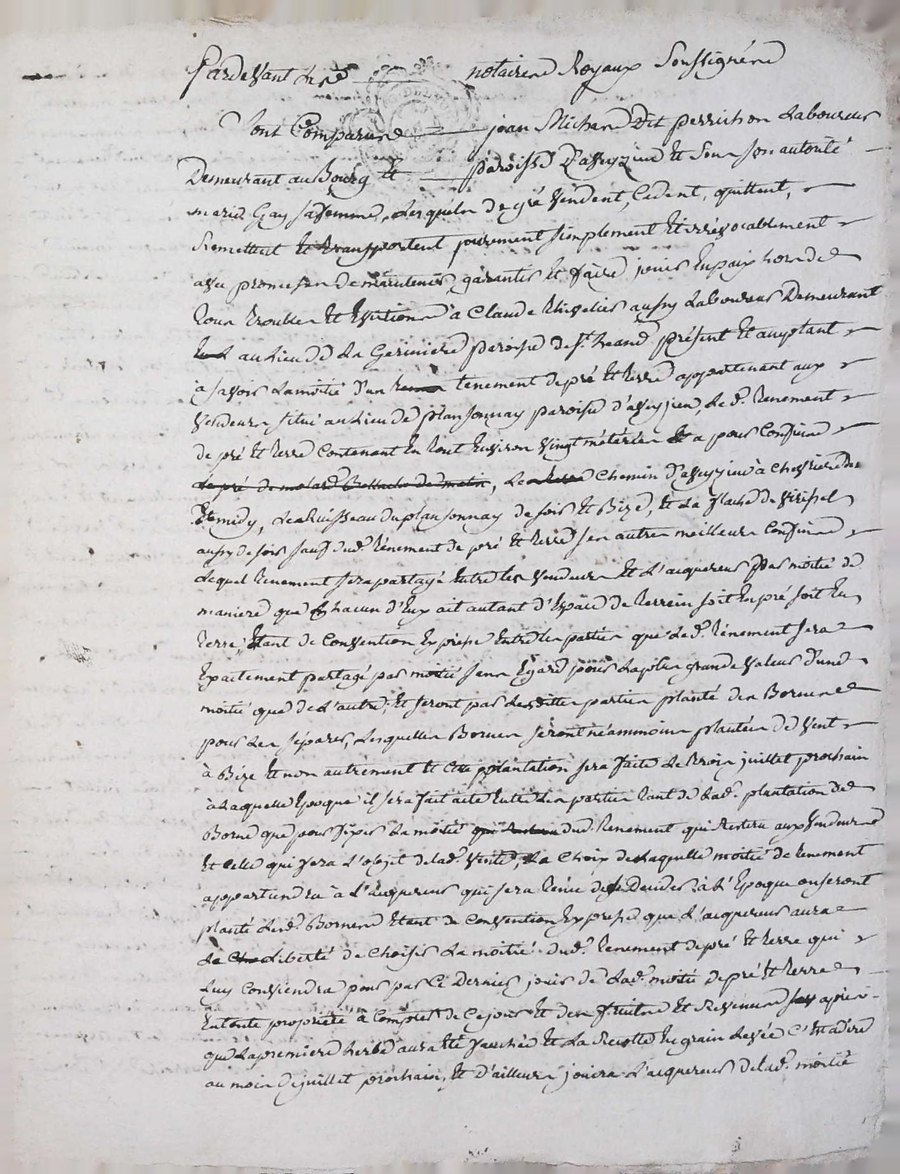 Pardevant Les notaires Royaux Soussignés
Sont Comparus jean Michard Dit perrichon Laboureur
Demeurant au Bourg et paroisse D'aveyzieu et Sous son autorité
marie Gay sa femme, Lesquels de gré Vendent, Cedent, quittent,
Remettent et transportent purement simplement et irrévocablement
avec promesse de maintenir, garantir et faire jouir En paix hors de
tous troubles et Evictions à Claude aussy Laboureur Demeurant
au Lieu de La parroisse de St. heand présent et acceptant
à savoir La moitié d'un tenement de pré et terre appartenant aux
Vendeurs situé au Lieu de plansonnay paroisse d'aveyzieu, Le d. tenement
de pré et terre Contenant En tout Environ Vingt méterées et a pour Confins
Le pré de , Le Chemin d'aveyzieu à Chevrieres de
et midy, Le Ruisseau du plansonnay de soir et Bize, et La de
aussy de soir sauf dud. ténement de pré et terre ses autres meilleurs Confins
Lequel tenement sera partagé Entre les Vendeurs et L'acquereur par moitié de
maniere que chacun d'Eux ait autant d'Espace de terrein soit En pré soit En
terre, Etant de Convention Expresse Entre les parties que Le d. ténement sera
Exactement partagé par moitié sans Egard pour La plus grande Valeur d'une
moitié que de L'autre, et seront par Lesdittes parties planté des Bornes
pour Les séparer, Lesquelles Bornes seront néammoins plantées de Vent
à Bize et non autrement et Cette plantation sera faite Le mois juillet prochain
à Laquelle Epoque il sera fait acte Entre Les parties tant de Lad. plantation de
Borne que pour fixer La moitié dud. tenement qui Restera aux Vendeurs
et Celle qui sera L'objet de Lad. Vente, Le Choix de Laquelle moitié de tenement
appartiendra à L'acquereur qui sera tenu de se Decider à L'Epoque où seront
planté Lesd. Bornes Etant de Convention Expresse que L'acquereur aura
La Liberté de Choisir La moitié dud. tenement de pré et terre qui
Luy Conviendra pour par Ce Dernier jouir de Lad. moitié de pré et terre
En toute propriété à Compter de Ce jour et des fruits et Revenus après
que La premiere herbe aura été fauchée et La Recolte En grain Levée C'est à dire
au mois de juillet prochain, et D'ailleurs jouira L'acquereur de Lad. moitié